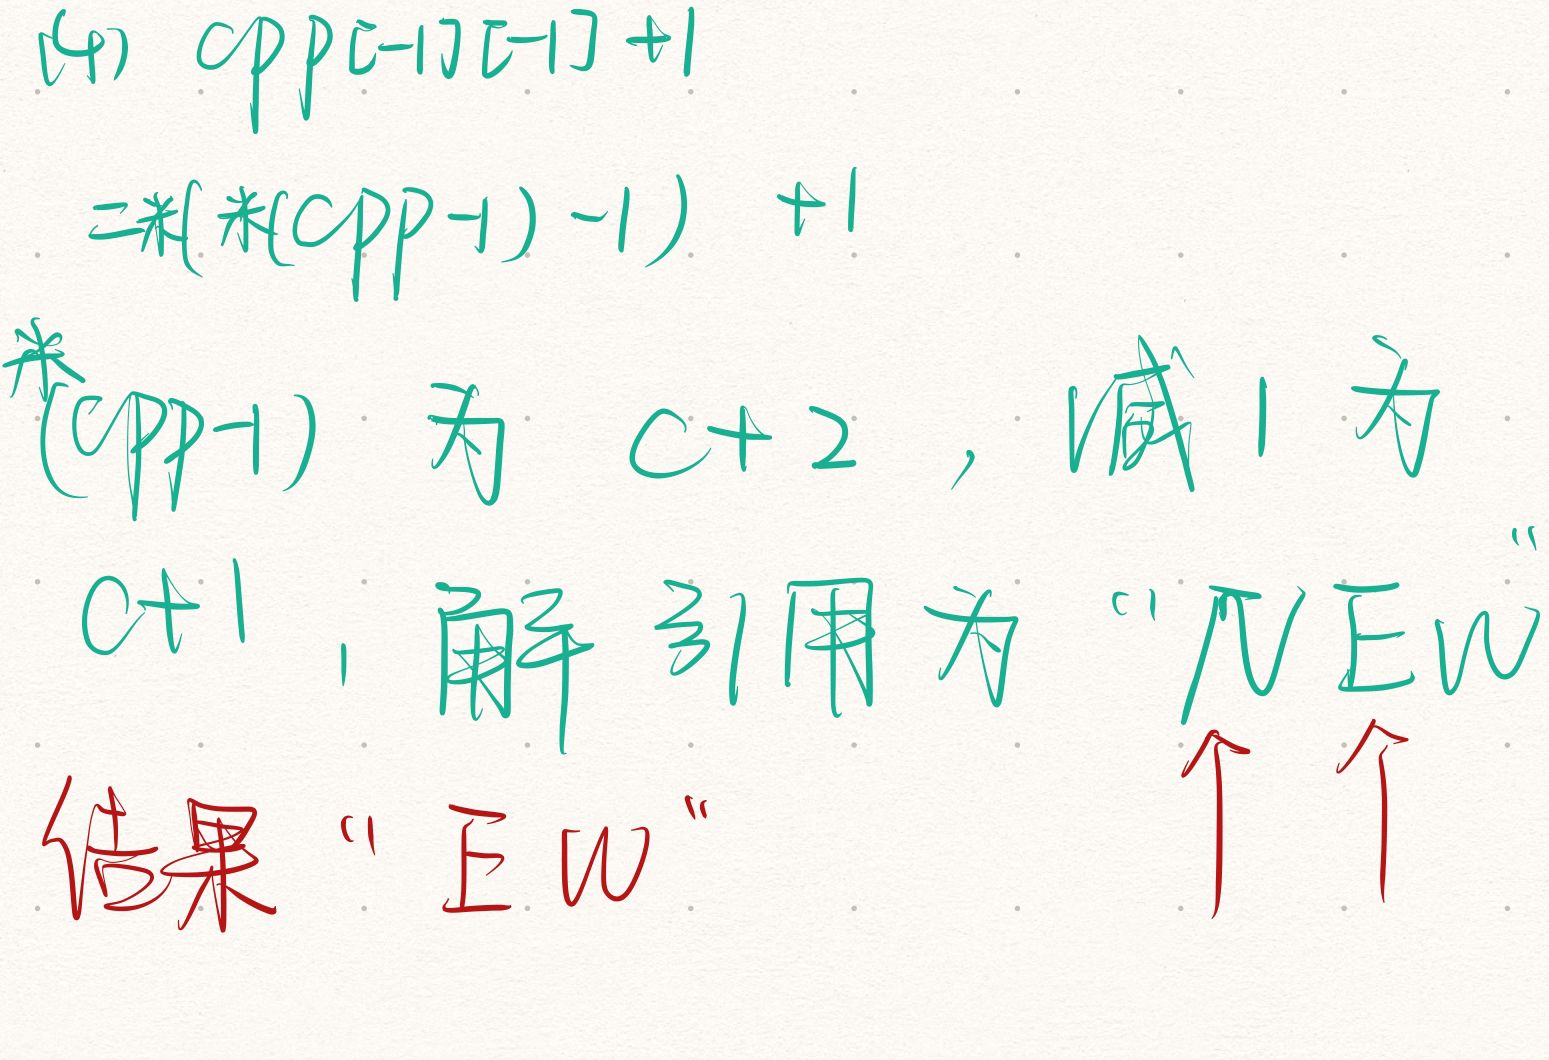 (4) cpp[-1][-1] +1
=*(*(cpp-1)-1) +1
*(cpp-1) 为 c+2 , 减1为
c+1 , 解引用为 "NEW"
结果 "EW"